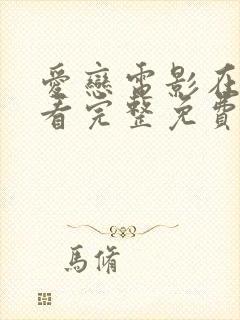 愛戀電影在
看完整免費
馬脩